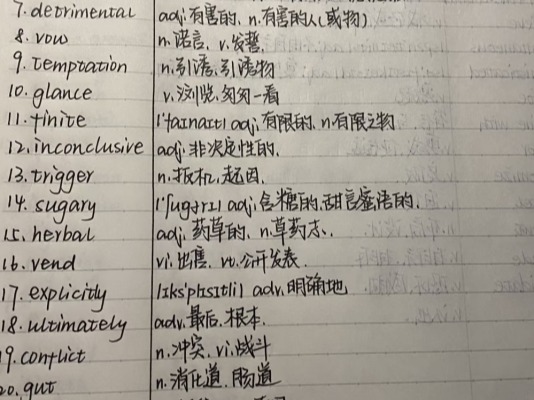 7. detrimental adj. 有害的, n. 有害的人(或物)
8. vow n. 诺言, v. 发誓.
9. temptation n. 引诱, 引诱物
10. glance v. 浏览, 匆匆一看
11. finite ['faɪnaɪt] adj. 有限的. n 有限之物
12. inconclusive adj. 非决定性的.
13. trigger n. 扳机, 起因.
14. sugary ['ʃʊgərɪ] adj. 含糖的, 甜言蜜语的.
15. herbal adj. 药草的. n. 草药志.
16. vend vi. 出售. vt. 公开发表.
17. explicitly adv. 明确地
18. ultimately adv. 最后. 根本.
19. conflict n. 冲突. vi. 战斗
20. gut n. 消化道. 肠道